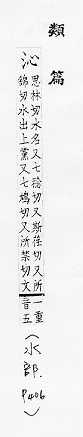 類篇
沁
思林切水名又七稔切又斯荏切又所
錦切水出上黨又七鴆切又所禁切文
一重音五
(水部.
P406)